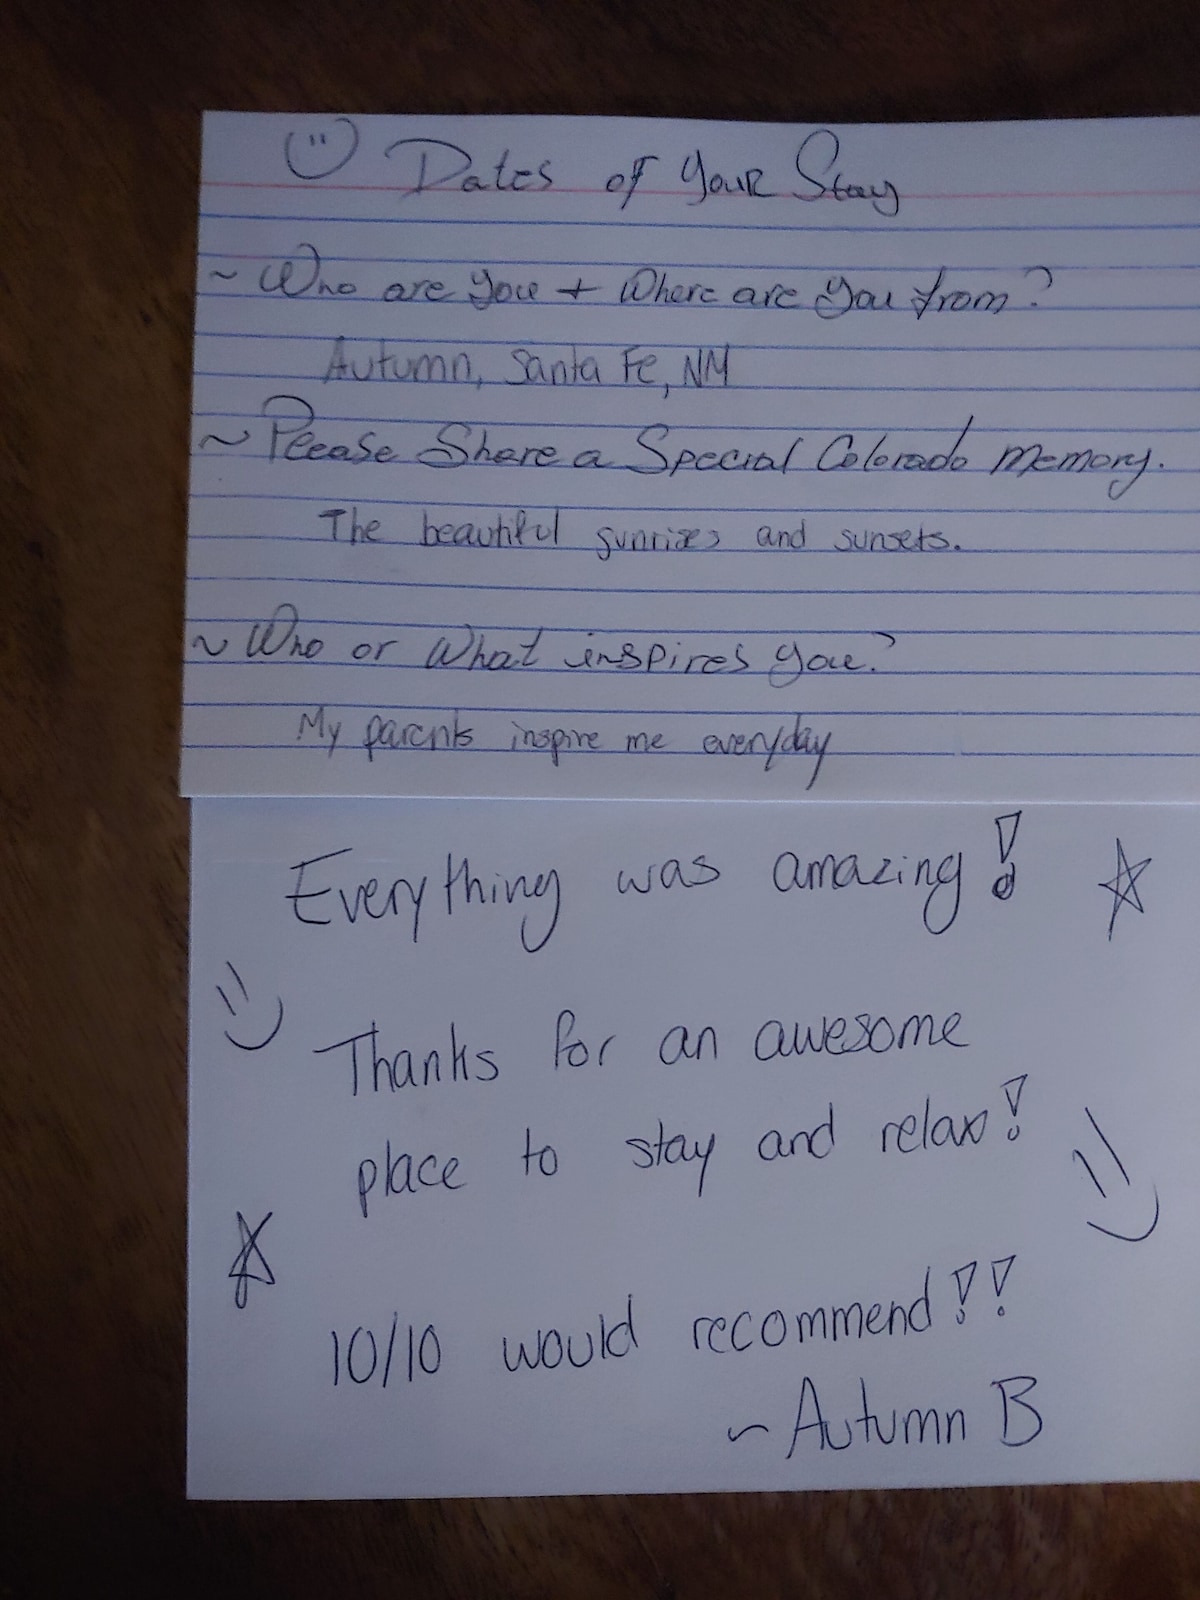 Dates of Your Stay
~ Who are you + Where are you from?
Autumn, Santa Fe, NM
~ Please Share a Special Colorado memory.
The beautiful sunrises and sunsets.
~ Who or What inspires you?
My parents inspire me everyday
Everything was amazing!
Thanks for an awesome
place to stay and relax!
10/10 would recommend!!
~ Autumn B